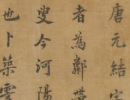 唐元結字
者為鄭世
叟今河陽
也卜築雲